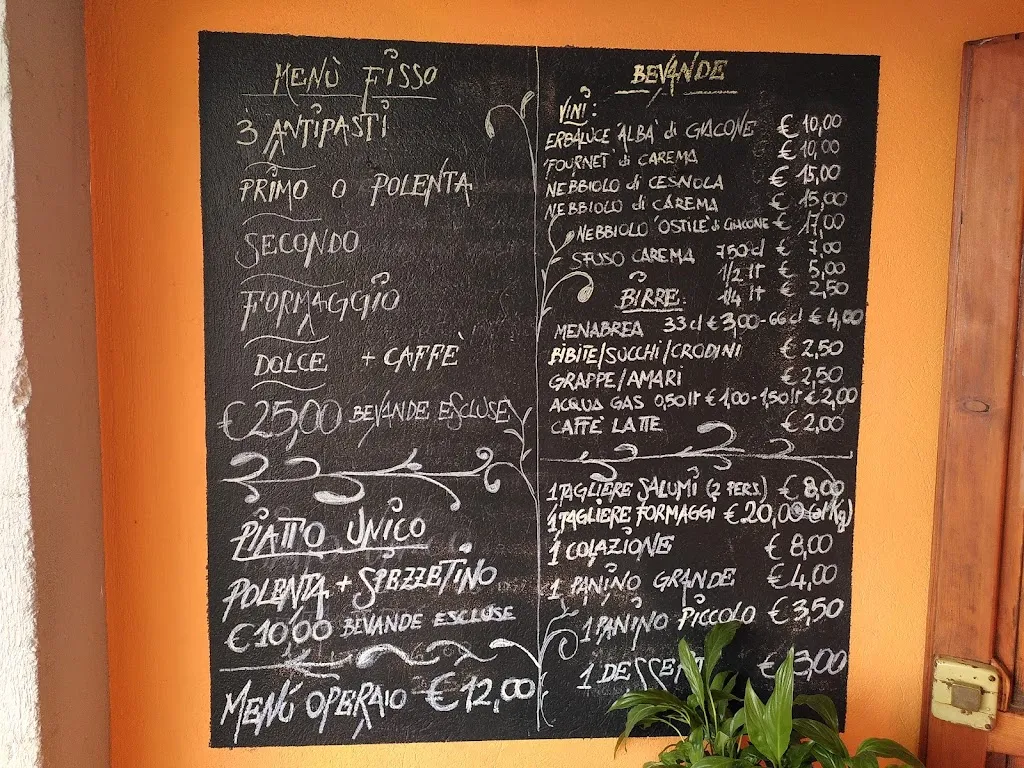 MENÙ FISSO
3 ANTIPASTI
PRIMO O POLENTA
SECONDO
FORMAGGIO
DOLCE + CAFFÈ
€25,00 BEVANDE ESCLUSE
PIATTO UNICO
POLENTA + SPEZZETINO
€10,00 BEVANDE ESCLUSE
MENÚ OPERAIO €12,00
BEVANDE
VINI:
ERBALUCE 'ALBA' di GIACONE € 10,00
'FOURNET' di CAREMA € 10,00
NEBBIOLO di CESNOLA € 15,00
NEBBIOLO di CAREMA € 15,00
NEBBIOLO 'OSTILE' di GIACONE € 17,00
SFUSO CAREMA 750 cl € 7,00
1/2 lt € 5,00
1/4 lt € 2,50
BIRRE:
MENABREA 33 cl € 3,00 - 66 cl € 4,00
BIBITE/SUCCHI/CRODINI € 2,50
GRAPPE/AMARI € 2,50
ACQUA GAS 0,50 lt € 1,00 - 1,50 lt € 2,00
CAFFÈ LATTE € 2,00
1 TAGLIERE SALUMI (2 PERS.) € 8,00
1 TAGLIERE FORMAGGI € 20,00 (al Kg)
1 COLAZIONE € 8,00
1 PANINO GRANDE € 4,00
1 PANINO PICCOLO € 3,50
1 DESSERT € 3,00